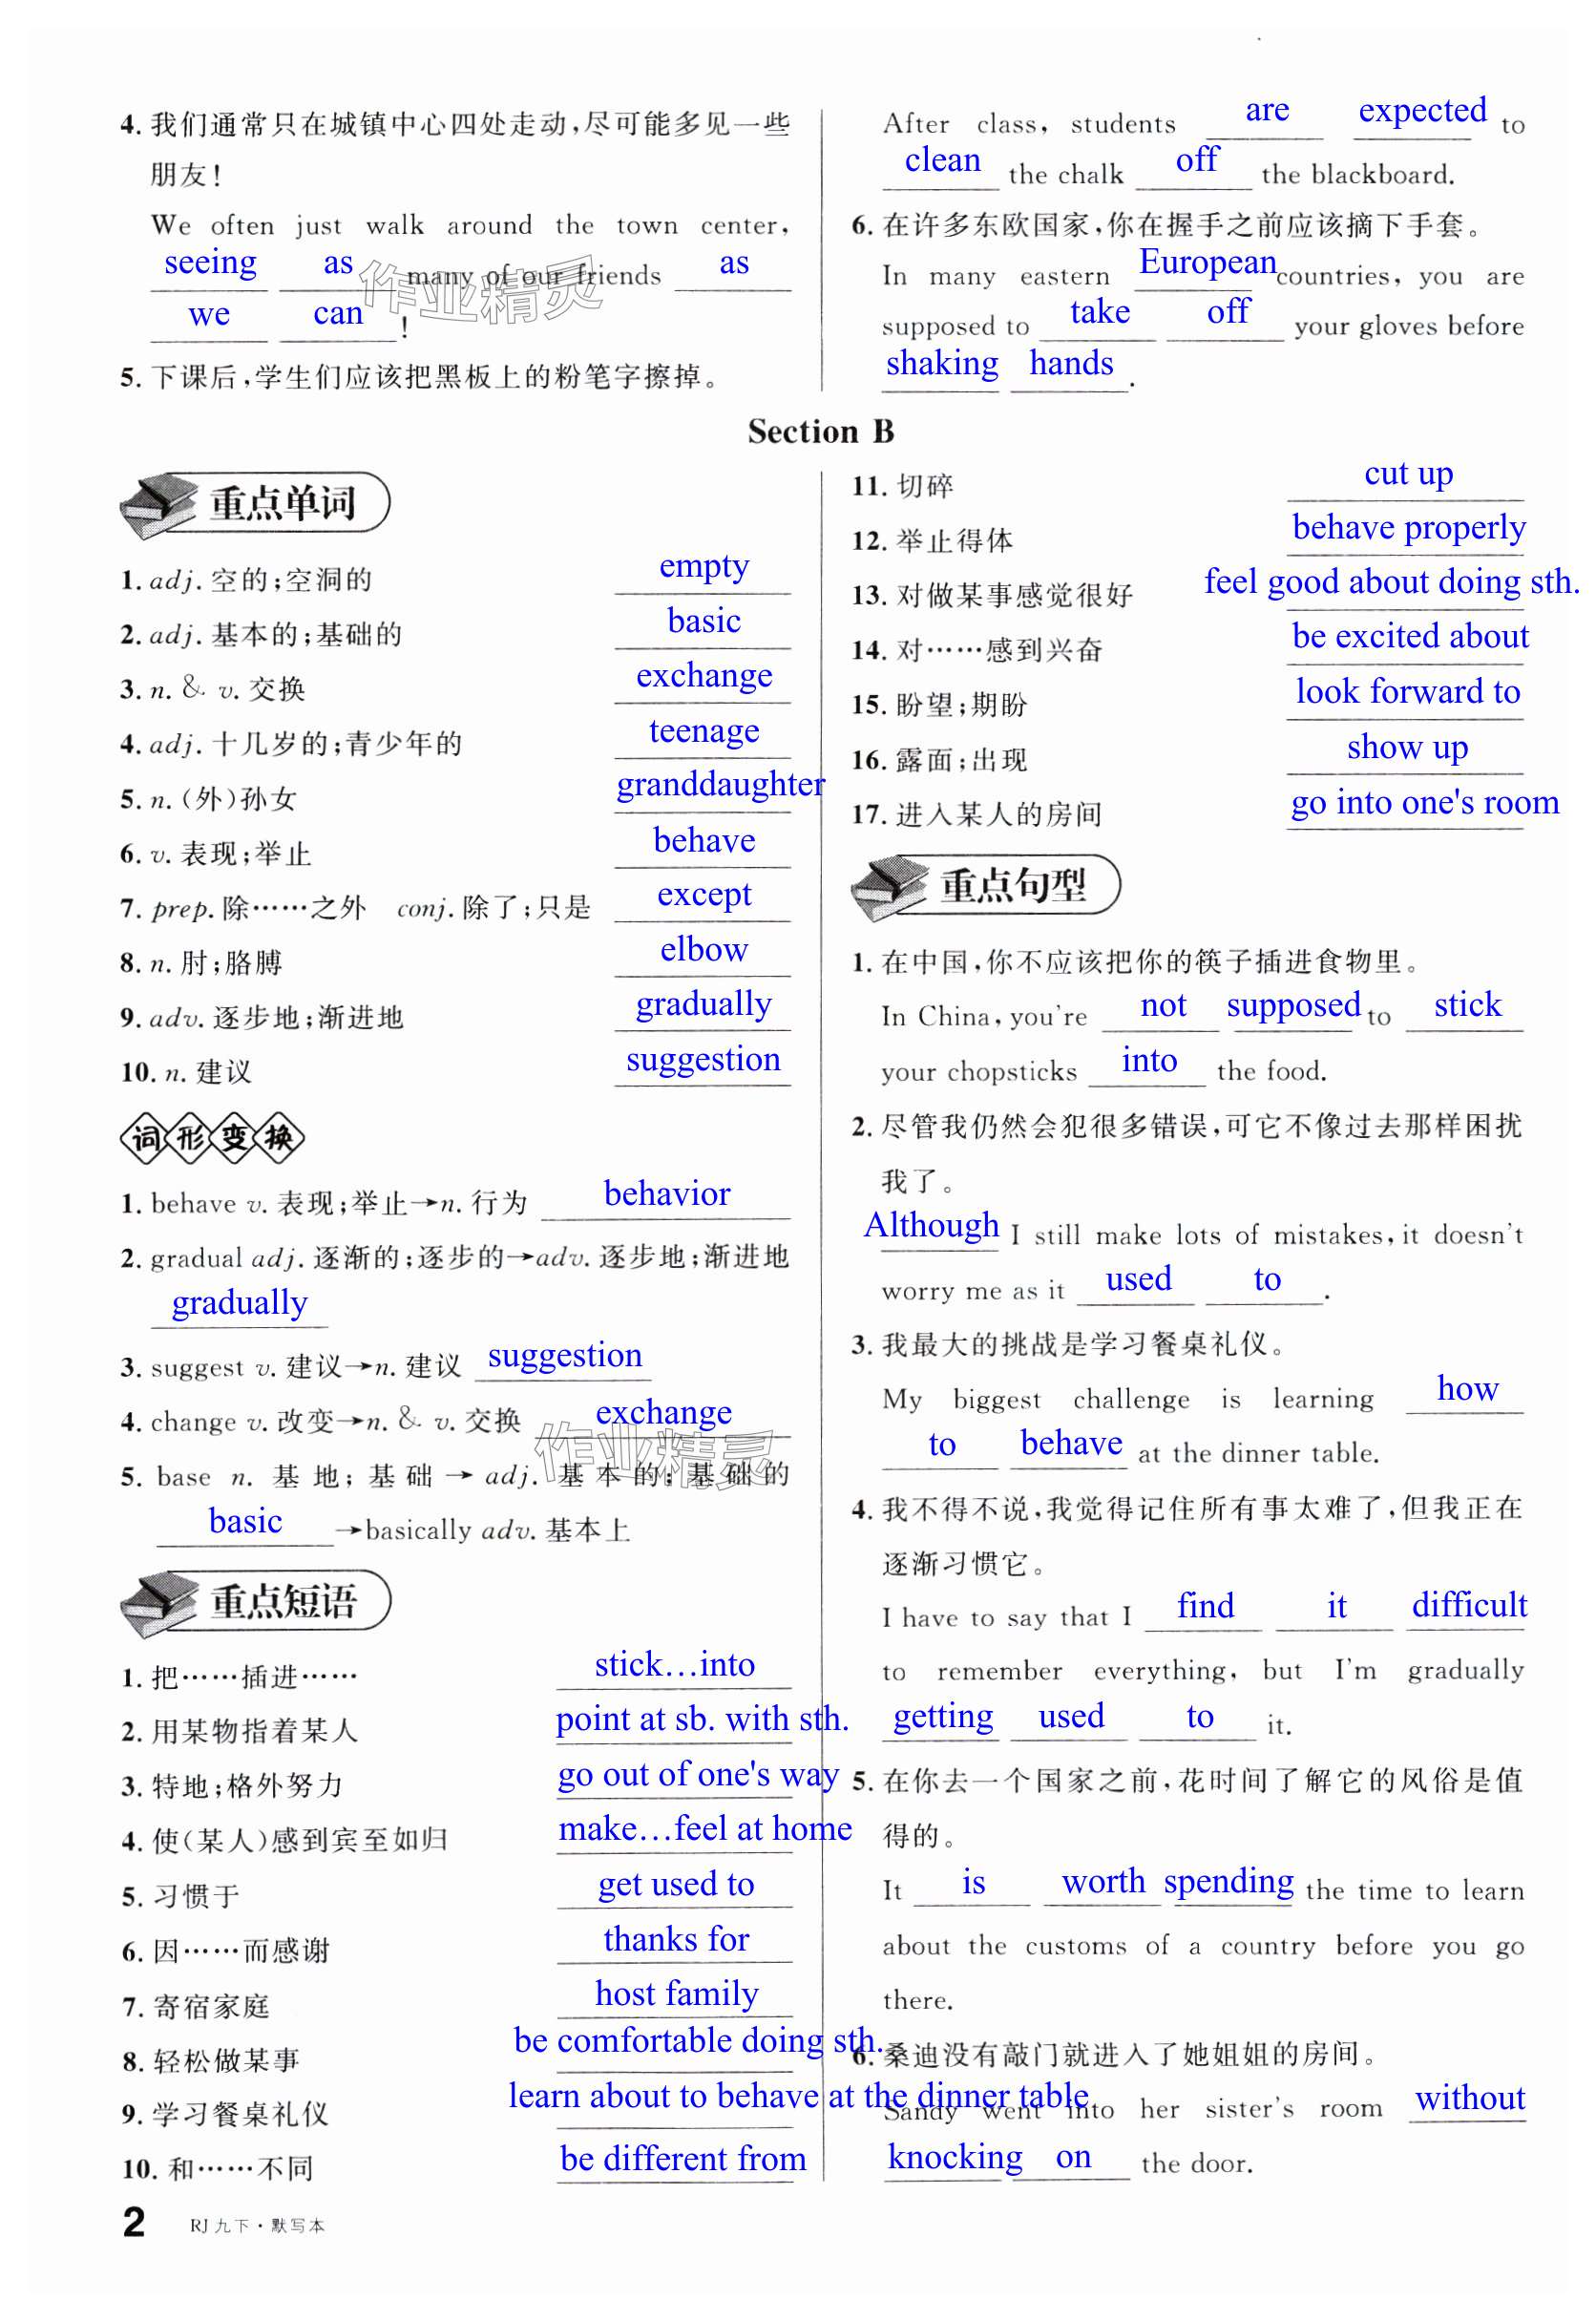 4. 我们通常只在城镇中心四处走动,尽可能多见一些
朋友!
We often just walk around the town center,
seeing as many of our friends as
we can !
5. 下课后,学生们应该把黑板上的粉笔字擦掉。
After class, students are expected to
clean the chalk off the blackboard.
6. 在许多东欧国家,你在握手之前应该摘下手套。
In many eastern European countries, you are
supposed to take off your gloves before
shaking hands .
Section B
重点单词
1. adj. 空的;空洞的 empty
2. adj. 基本的;基础的 basic
3. n. & v. 交换 exchange
4. adj. 十几岁的;青少年的 teenage
5. n. (外)孙女 granddaughter
6. v. 表现;举止 behave
7. prep. 除……之外 conj. 除了;只是 except
8. n. 肘;胳膊 elbow
9. adv. 逐步地;渐进地 gradually
10. n. 建议 suggestion
词形变换
1. behave v. 表现;举止→n. 行为 behavior
2. gradual adj. 逐渐的;逐步的→adv. 逐步地;渐进地
gradually
3. suggest v. 建议→n. 建议 suggestion
4. change v. 改变→n. & v. 交换 exchange
5. base n. 基地;基础→ adj. 基本的;基础的
basic →basically adv. 基本上
重点短语
1. 把……插进…… stick…into
2. 用某物指着某人 point at sb. with sth.
3. 特地;格外努力 go out of one's way
4. 使(某人)感到宾至如归 make…feel at home
5. 习惯于 get used to
6. 因……而感谢 thanks for
7. 寄宿家庭 host family
8. 轻松做某事 be comfortable doing sth.
9. 学习餐桌礼仪 learn about to behave at the dinner table
10. 和……不同 be different from
11. 切碎 cut up
12. 举止得体 behave properly
13. 对做某事感觉很好 feel good about doing sth.
14. 对……感到兴奋 be excited about
15. 盼望;期盼 look forward to
16. 露面;出现 show up
17. 进入某人的房间 go into one's room
重点句型
1. 在中国,你不应该把你的筷子插进食物里。
In China, you're not supposed to stick
your chopsticks into the food.
2. 尽管我仍然会犯很多错误,可它不像过去那样困扰
我了。
Although I still make lots of mistakes, it doesn't
worry me as it used to .
3. 我最大的挑战是学习餐桌礼仪。
My biggest challenge is learning how
to behave at the dinner table.
4. 我不得不说,我觉得记住所有事太难了,但我正在
逐渐习惯它。
I have to say that I find it difficult
to remember everything, but I'm gradually
getting used to it.
5. 在你去一个国家之前,花时间了解它的风俗是值
得的。
It is worth spending the time to learn
about the customs of a country before you go
there.
6. 桑迪没有敲门就进入了她姐姐的房间。
Sandy went into her sister's room without
knocking on the door.
2 RJ 九下·默写本
作业精灵
作业精灵